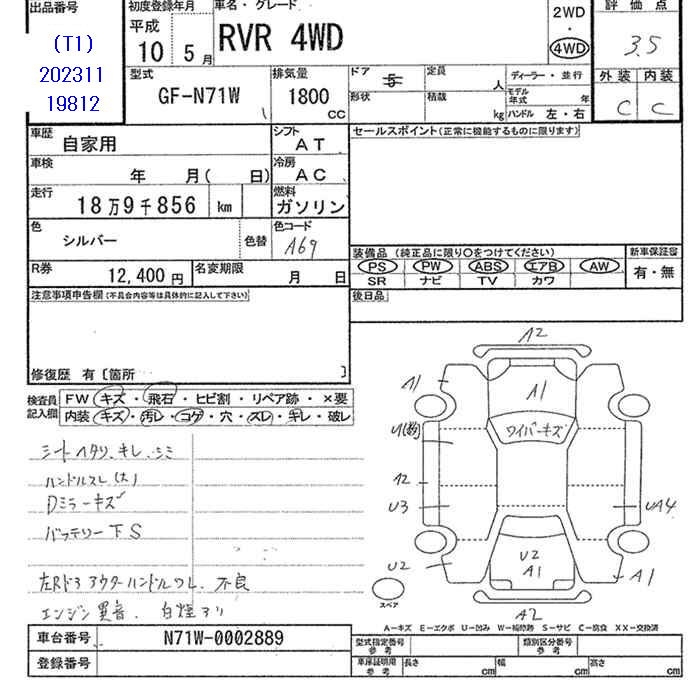 出品番号 初度登録年月 車名・グレード 2WD 評価点
(T1) 平成 RVR 4WD ・ 3.5
202311 10 5月 4WD 外装 内装
19812 C C
型式 排気量 ドア 5 定員 人 ディーラー・並行
GF-N71W 1800 CC 形状 積載 kg モデル年式 年
ハンドル 左・右
車歴 自家用 シフト AT セールスポイント(正常に機能するものに限ります)
車検 年 月( 日) 冷房 AC
走行 18万9千856 km 燃料 ガソリン
色 シルバー 色替 色コード A69
装備品 (純正品に限り〇をつけてください) 新車保証書
R券 12,400円 名変期限 月 日 PS PW ABS エアB AW 有・無
SR ナビ TV カワ
注意事項申告欄(不具合内容等は具体的に記入して下さい) 後日品
修復歴 有〔箇所 〕
検査員記入欄 FW キズ・飛石・ヒビ割・リペア跡・×要
内装 キズ・汚レ・コゲ・穴・スレ・キレ・破レ
シートヘタリ、キレ、シミ
ハンドルスレ(大)
Dミラーキズ
バッテリー下S
エンジン異音、白煙アリ
A2
A1 A1
ワイパーキズ
A2
U3 UA4
U2 U2 A1
A1
スペア A2
A−キズ E−エクボ U−凹み W−補修跡 S−サビ C−腐食 XX−交換済
車台番号 N71W-0002889 型式指定番号 参考 類別区分番号 参考
登録番号 車庫証明用 参考 長さ cm 幅 cm 高さ cm